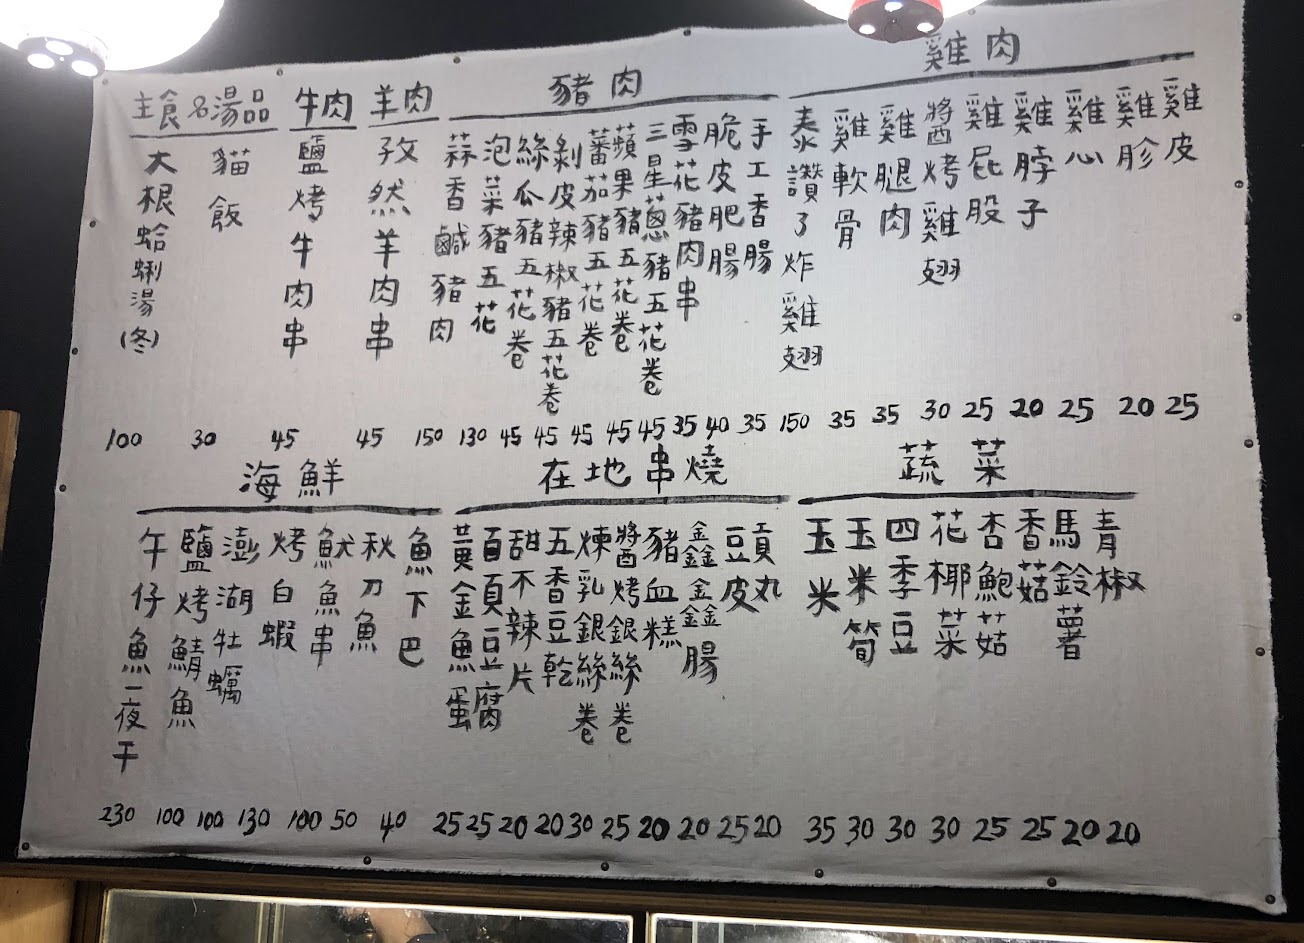 雞肉
雞皮 25
雞胗 20
雞心 25
雞脖子 20
雞屁股 25
醬烤雞翅 30
雞腿肉 35
雞軟骨 35
泰讚了炸雞翅 150
豬肉
手工香腸 35
脆皮肥腸 40
雪花豬肉串 35
三星蔥豬五花卷 45
蘋果豬五花卷 45
蕃茄豬五花卷 45
剝皮辣椒豬五花卷 45
絲瓜豬五花卷 45
泡菜豬五花 130
蒜香鹹豬肉 150
羊肉
孜然羊肉串 45
牛肉
鹽烤牛肉串 45
主食名湯品
貓飯 30
大根蛤蜊湯(冬) 100
蔬菜
青椒 20
馬鈴薯 20
香菇 25
杏鮑菇 25
花椰菜 30
四季豆 30
玉米筍 30
玉米 35
在地串燒
貢丸 20
豆皮 25
鑫鑫腸 20
豬血糕 20
醬烤銀絲卷 25
煉乳銀絲卷 30
五香豆乾 20
甜不辣片 20
百頁豆腐 25
黃金魚蛋 25
海鮮
魚下巴 40
秋刀魚 50
魷魚串 100
烤白蝦 130
澎湖牡蠣 100
鹽烤鯖魚 100
午仔魚一夜干 230